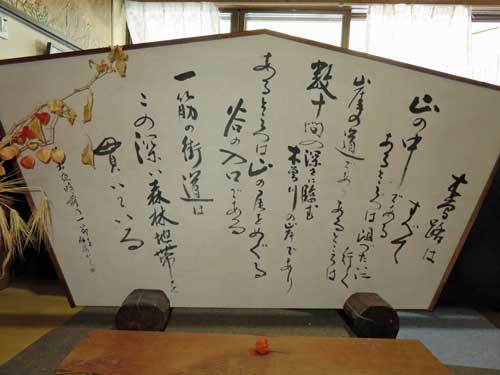 木曽路は
すべて
山の中
である
あるところは岨づたいに行く
崖の道であり
あるところは
数十間の深さに臨む
木曽川の岸であり
あるところは山の尾をめぐる
谷の入口である
一筋の街道は
この深い森林地帯を
貫いている